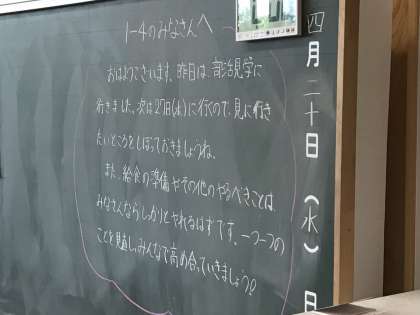 1-4のみなさんへ
おはようございます。昨日は、部活見学に
行きました。次は27日(水)に行くので、見に行き
たいところをしぼっておきましょうね。
また、給食の準備やその他のやるべきことは、
みなさんならしっかりとやれるはずです。一つ一つの
ことを見直し、みんなで高め合っていきましょう!
四月二十日(水)日